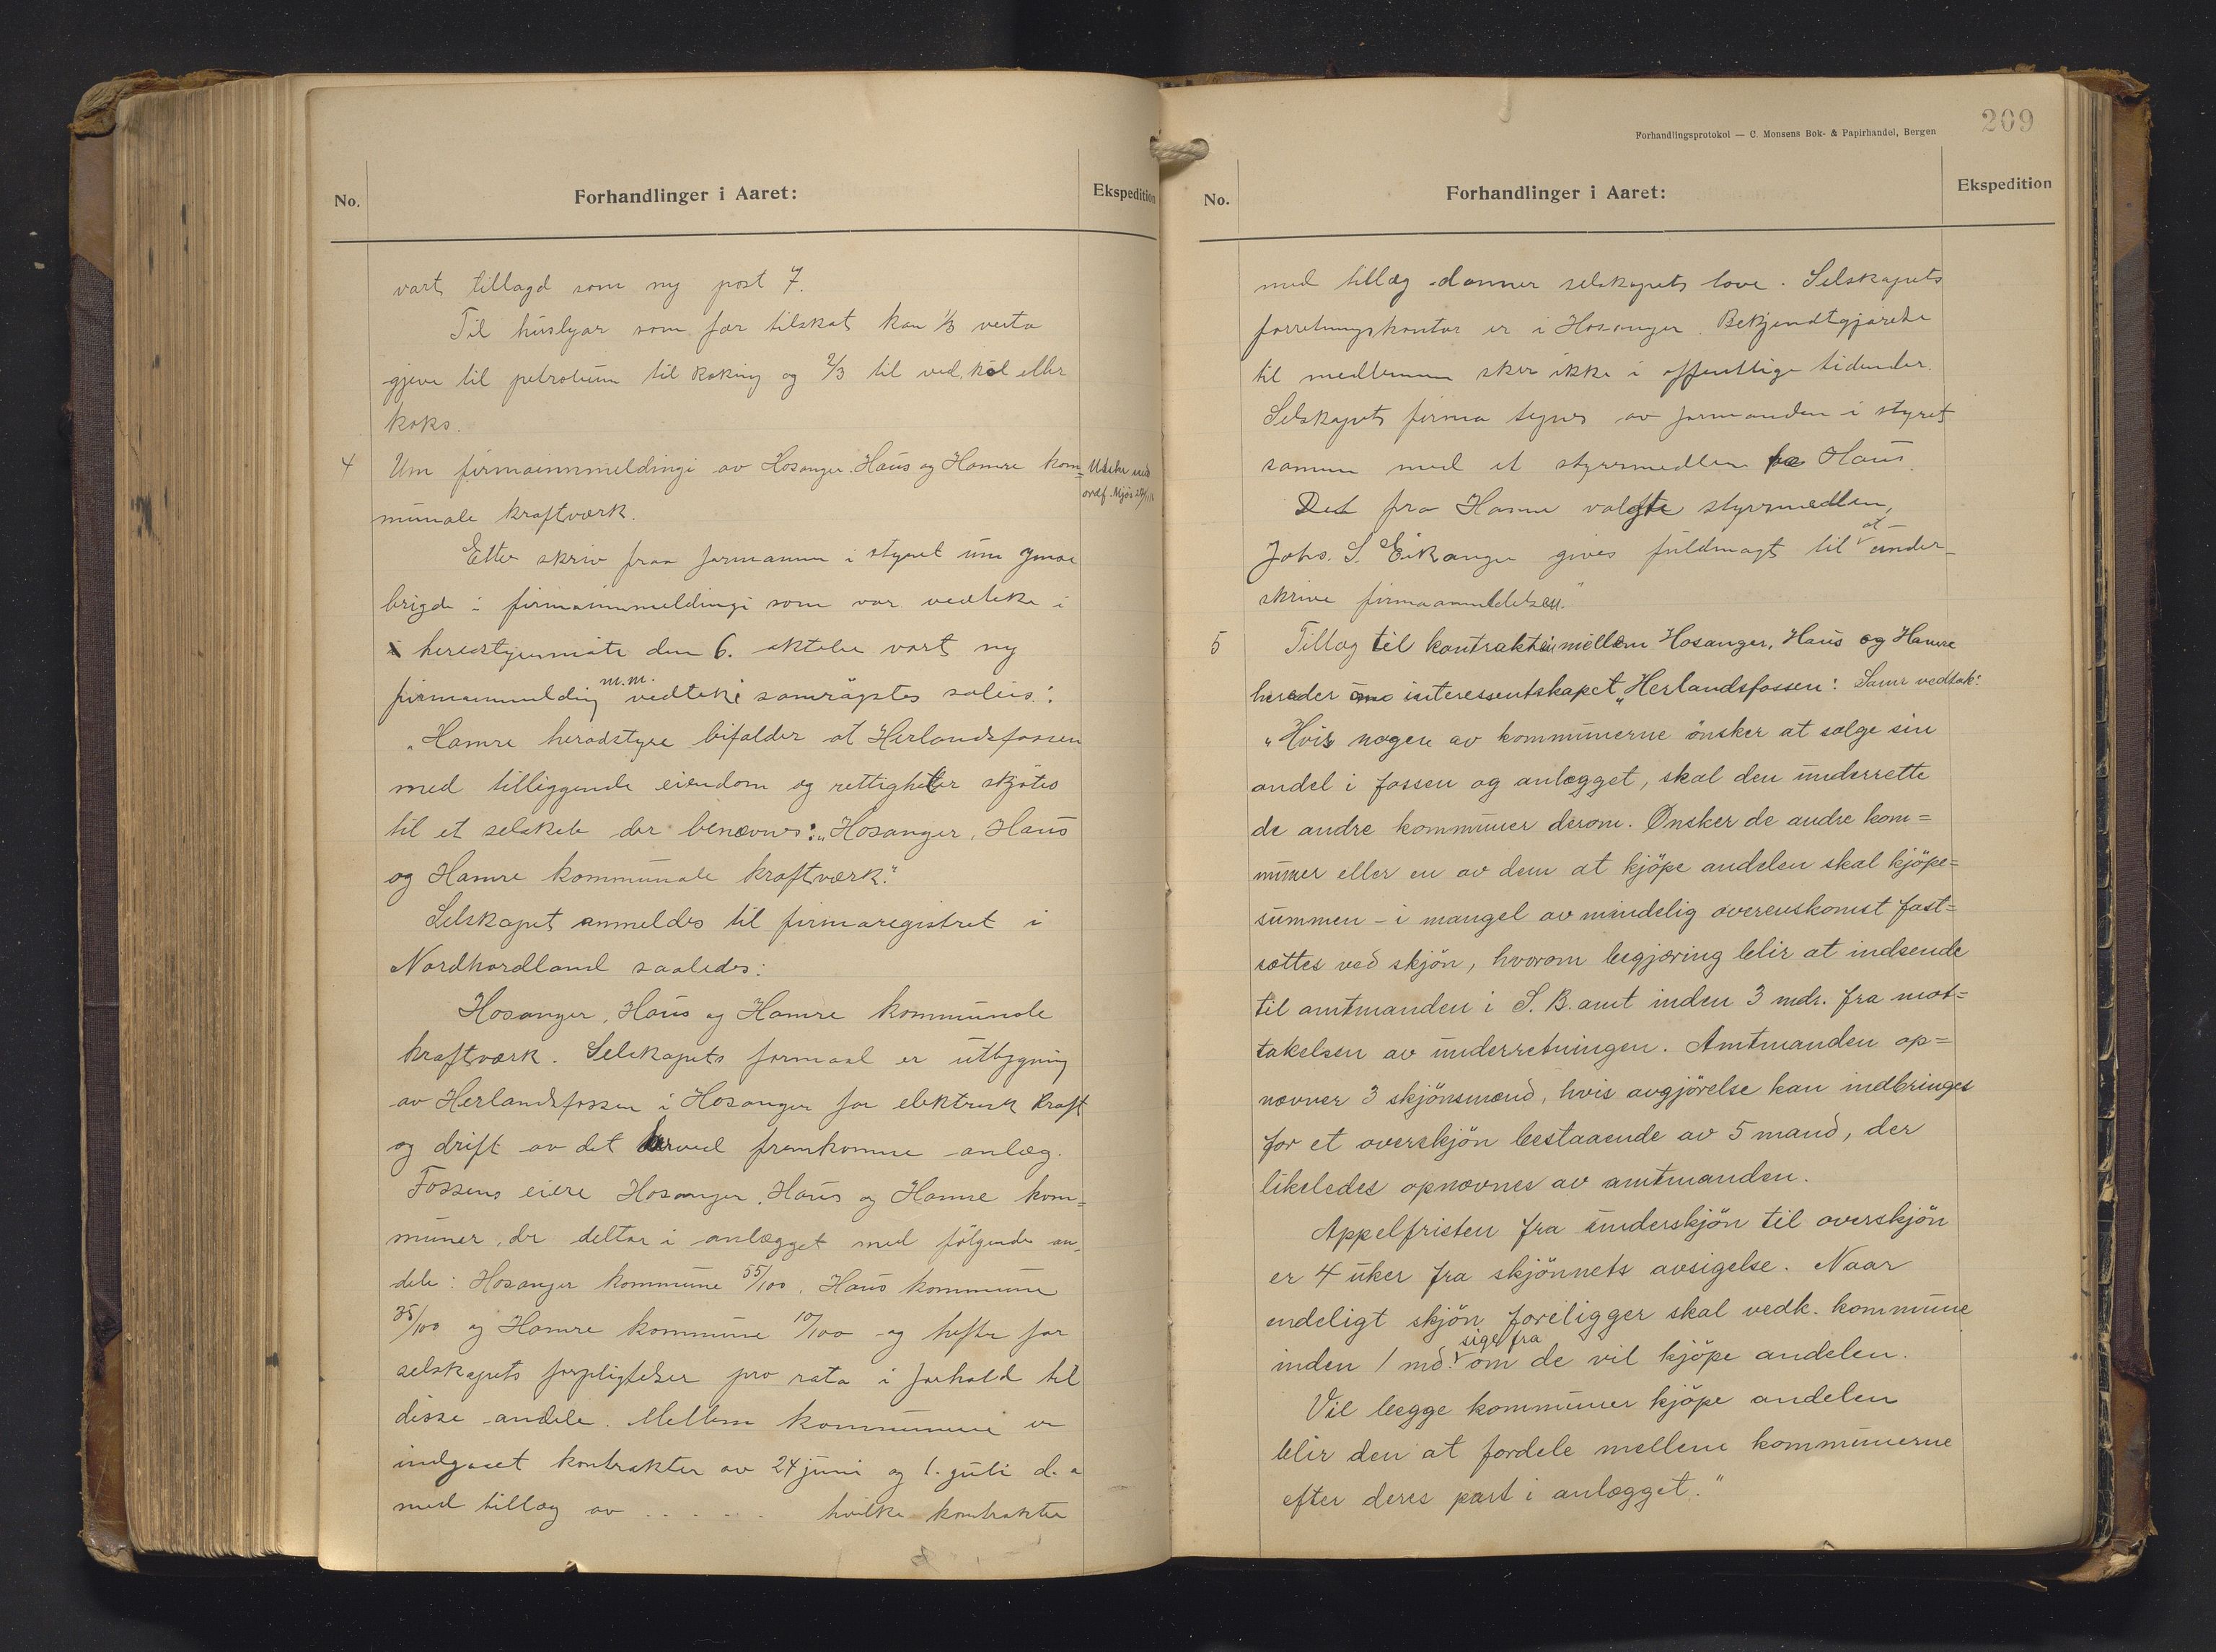 No.
Forhandlinger i Aaret:
Ekspedition
vart tillagd som ny post 7.
Til huslyar som fær tilskot kan 1/3 verta
gjeve til petroleum til koking og 2/3 til ved, kol eller
koks.
4 Um firmainnmeldingi av Hosanger, Haus og Hamre kom=
munale kraftværk.
Etter skriv fraa formannen i styret um ymse
brigde i firmainnmeldingi som var vedteke i
i heradstyremøte den 6. oktober vart ny
firmainnmelding m.m. vedteke samrøystes soleis:
„Hamre heradstyre bifalder at Herlandsfossen
med tilliggende eiendom og rettigheter skjøtes
til et selskab der benævnes: „Hosanger, Haus
og Hamre kommunale kraftværk."
Selskapet anmeldes til firmaregistret i
Nordhordland saaledes:
Hosanger, Haus og Hamre kommunale
kraftværk. Selskapets formaal er utbygning
av Herlandsfossen i Hosanger for elektrisk kraft
og drift av det herved fremkomne anlæg.
Fossens eiere Hosanger, Haus og Hamre kom=
muner, der deltar i anlægget med følgende an-
dele: Hosanger kommune 55/100, Haus kommune
35/100 og Hamre kommune 10/100 og hefter for
selskapets forpligtelser pro rata i forhold til
disse andele. Mellem kommunene er
indgaaet kontrakter av 24 juni og 1. juli d. a
med tillæg av . . . . . . hvilke kontrakter
209
Forhandlingsprotokol — C. Monsens Bok- & Papirhandel, Bergen
No.
Forhandlinger i Aaret:
Ekspedition
med tillæg danner selskapets love. Selskapets
forretningskontor er i Hosanger. Bekjendtgjørelse
til medlemmer sker ikke i offentlige tidender.
Selskapets firma tegnes av formanden i styret
sammen med et styresmedlem fra Haus.
Det fra Hamre valgte styresmedlem,
Johs. S. Eikanger gives fuldmagt til at under-
skrive firmaanmeldelsen."
5 Tillæg til kontrakten mellem Hosanger, Haus og Hamre
herader um interessentskapet „Herlandsfossen: Samr vedtok:
„Hvis nogen av kommunerne ønsker at sælge sin
andel i fossen og anlægget, skal den underrette
de andre kommuner derom. Ønsker de andre kom=
muner eller en av dem at kjøpe andelen skal kjøpe=
summen – i mangel av mindelig overenskomst fast=
sættes ved skjøn, hvorom begjæring blir at indsende
til amtmanden i S. B. amt inden 3 mdr. fra mot=
takelsen av underretningen. Amtmanden op=
nævner 3 skjønsmænd, hvis avgjørelse kan indbringes
for et overskjøn bestaaende av 5 mand, der
likeledes opnævnes av amtmanden.
Appelfristen fra underskjøn til overskjøn
er 4 uker fra skjønnets avsigelse. Naar
endeligt skjøn foreligger skal vedk. kommune
inden 1 md. sige fra om de vil kjøpe andelen.
Vil begge kommuner kjøpe andelen
blir den at fordele mellem kommunerne
efter deres part i anlægget."